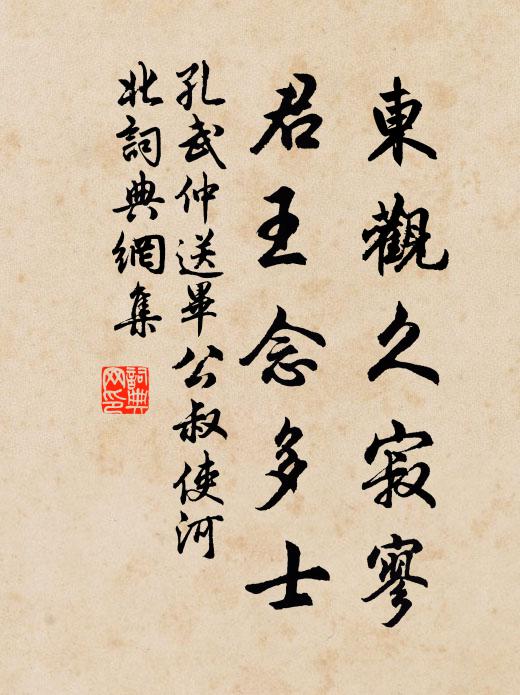 東觀久寂寥
君王念多士
孔武仲送畢公叔使河
北詞典網集
詞典
网印